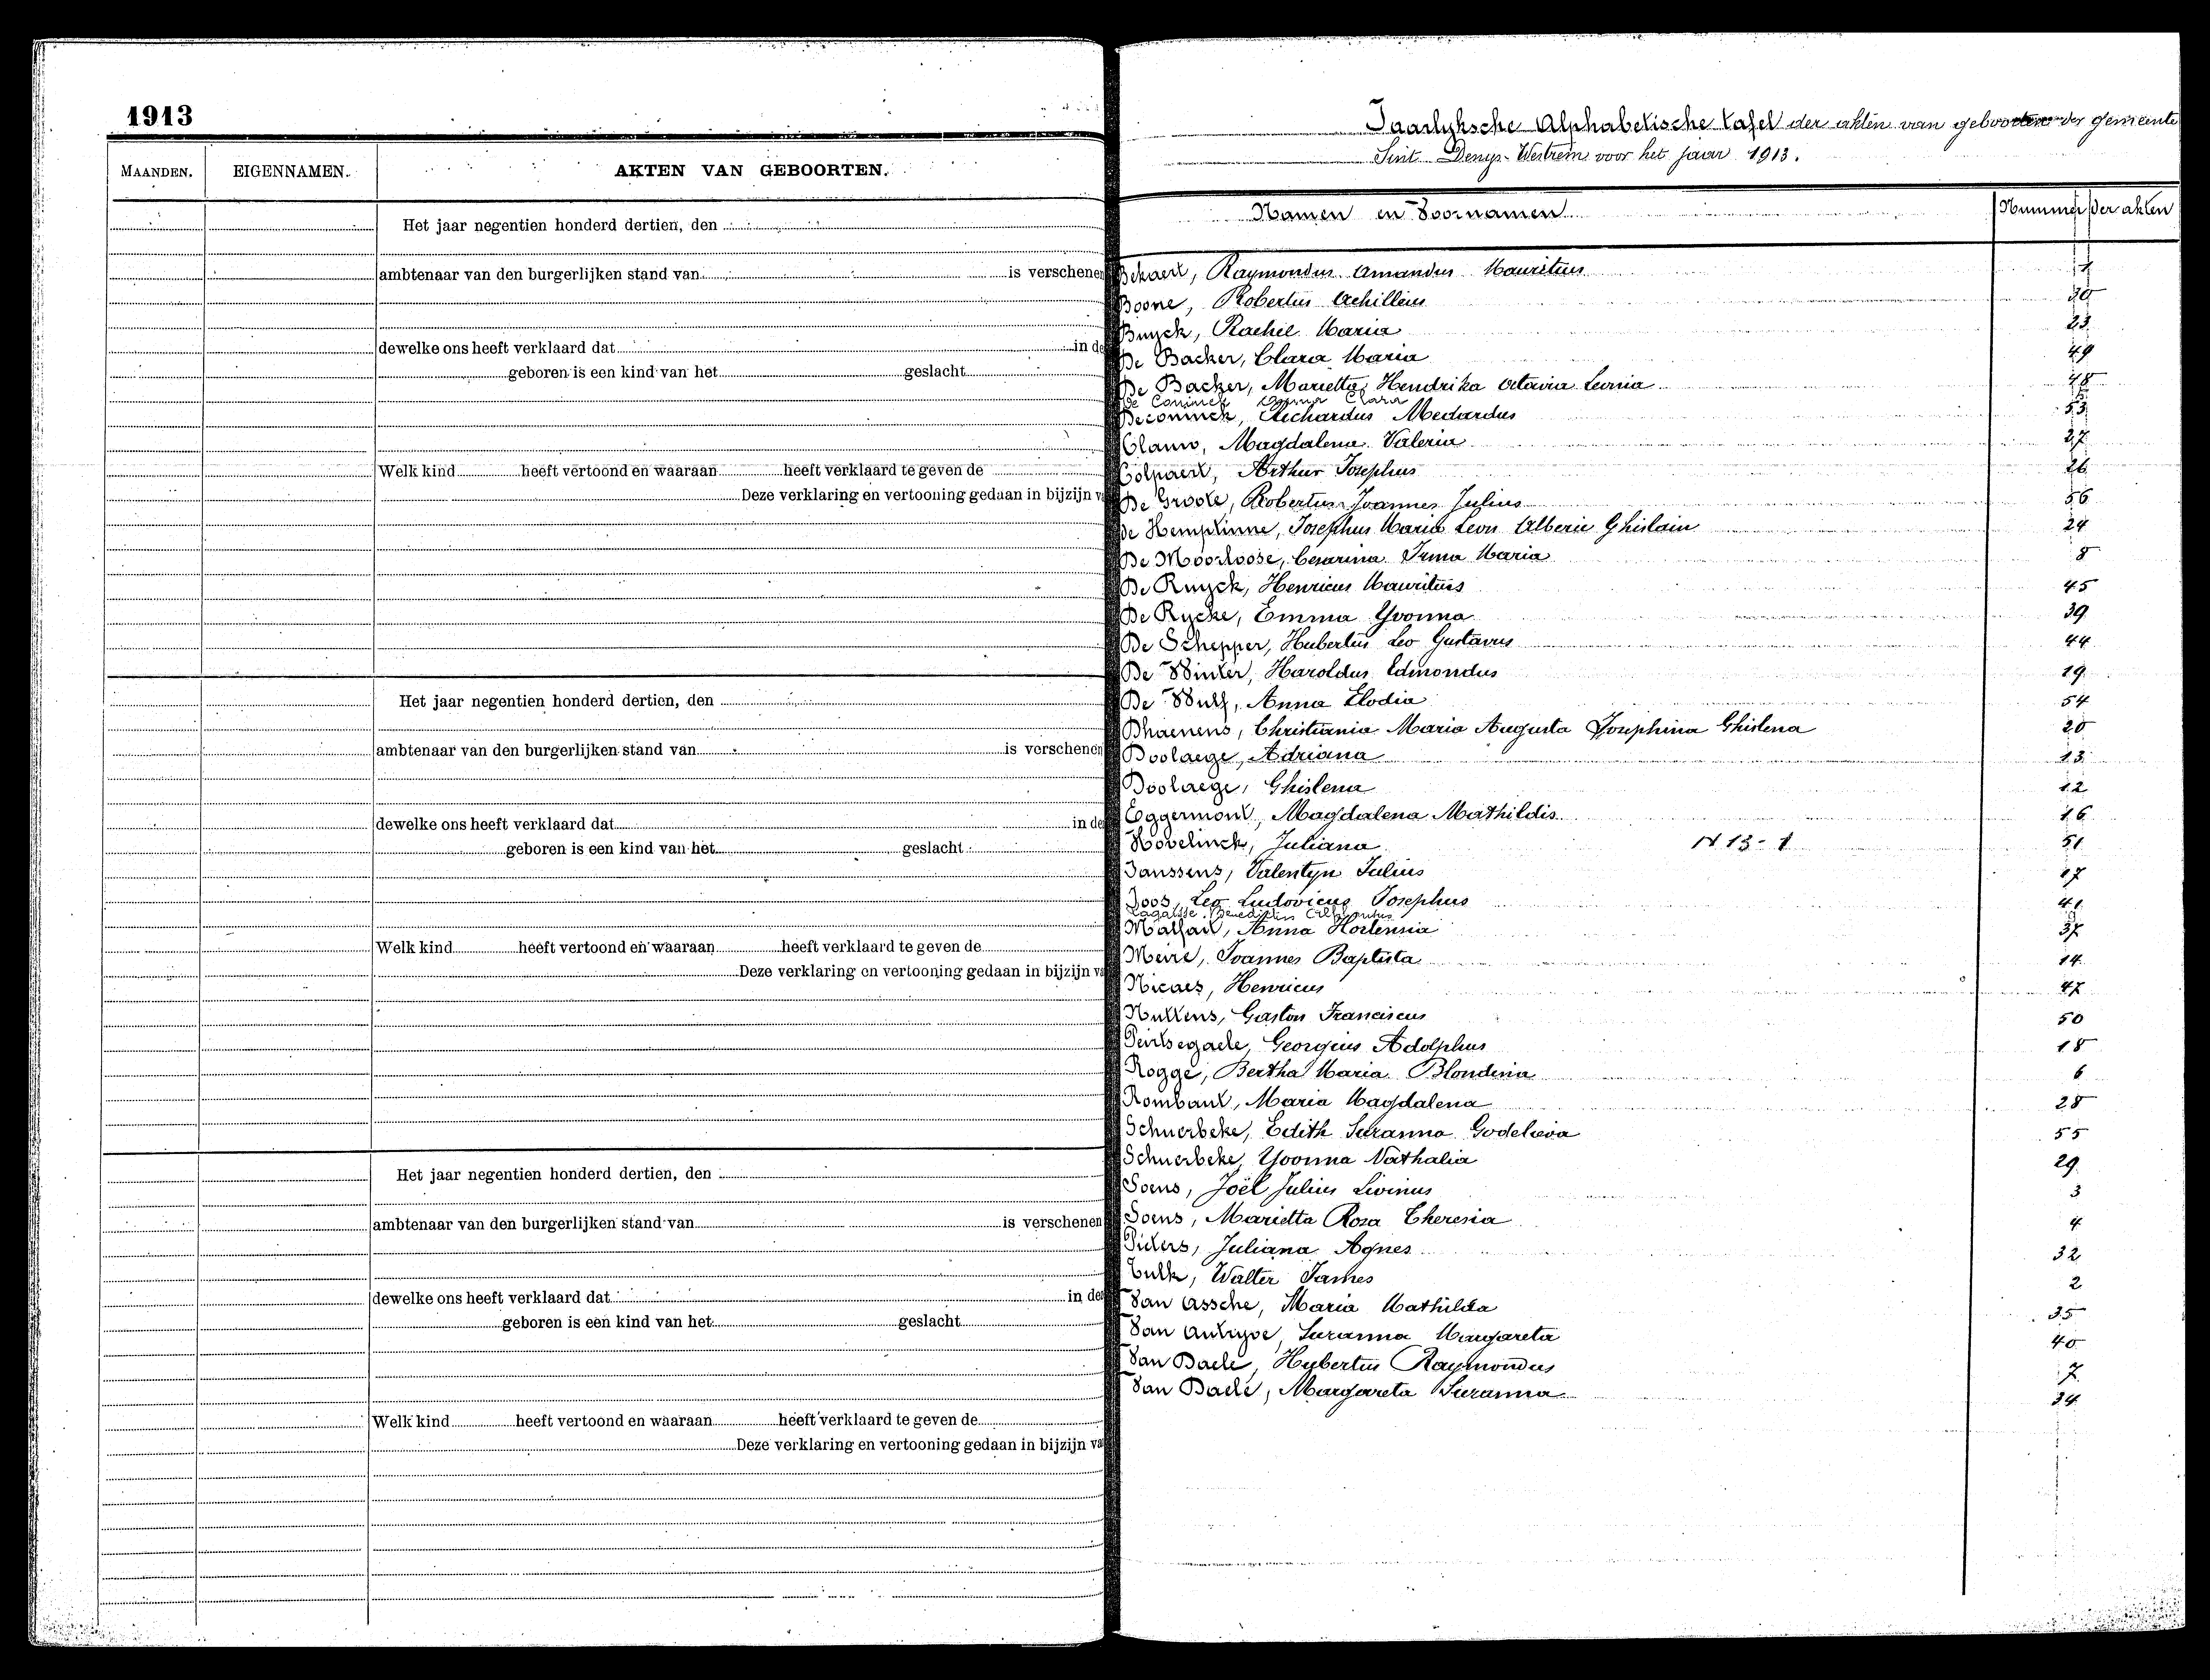 1913
MAANDEN. EIGENNAMEN. AKTEN VAN GEBOORTEN.
Het jaar negentien honderd dertien, den
ambtenaar van den burgerlijken stand van is verschenen
dewelke ons heeft verklaard dat in de
geboren is een kind van het geslacht
Welk kind heeft vertoond en waaraan heeft verklaard te geven de
Deze verklaring en vertooning gedaan in bijzijn v
Het jaar negentien honderd dertien, den
ambtenaar van den burgerlijken stand van is verschenen
dewelke ons heeft verklaard dat in de
geboren is een kind van het geslacht
Welk kind heeft vertoond en waaraan heeft verklaard te geven de
Deze verklaring en vertooning gedaan in bijzijn v
Het jaar negentien honderd dertien, den
ambtenaar van den burgerlijken stand van is verschenen
dewelke ons heeft verklaard dat in de
geboren is een kind van het geslacht
Welk kind heeft vertoond en waaraan heeft verklaard te geven de
Deze verklaring en vertooning gedaan in bijzijn va
Jaarlyksche Alphabetische tafel der akten van geboorten der gemeente
Sint Denys-Westrem voor het jaar 1913.
Namen en Voornamen Nummers der akten
Raymondus Amandus Mauritius
Boone, Robertus Achilleus 30
Buyck, Rachel Maria 23
De Backer, Clara Maria 49
De Backer, Marietta Hendrika Octavia Leonia 48
De Coninck Clara
Deconinck, Richardus Medardus 53
Clauw, Magdalena Valeria 27
Colpaert, Arthur Josephus 26
De Groote, Robertus Joannes Julius 56
De Hemptinne, Josephus Maria Leon Alberic Ghislain 24
De Moorloose, Cesarina Irma Maria 8
De Ruyck, Henricus Mauritius 45
De Rycke, Emma Yvonna 39
De Schepper, Hubertus Leo Gustavus 44
De Winter, Haroldus Edmondus 19
De Wulf, Anna Elodia 54
Dhaenens, Christiania Maria Augusta Josephina Ghislena 20
Doolaege, Adriana 13
Doolaege, Ghislena 12
Eggermont, Magdalena Mathildis 16
Hovelinck, Juliana N 13-1 51
Janssens, Valentyn Julius 17
Joos, Leo Ludovicus Josephus 41
Lagaisse, Benedictus
Malfait, Anna Hortensia 37
Meire, Joannes Baptista 14
Nicaes, Henricus 47
Nuttens, Gaston Franciscus 50
Peirsegaele, Georgius Adolphus 18
Rogge, Bertha Maria Blondina 6
Rombaut, Maria Magdalena 28
Schuerbeke, Edith Suzanna Godelieva 55
Schuerbeke, Yvonna Nathalia 29
Soens, Joël Julius Livinus 3
Soens, Marietta Rosa Theresia 4
Juliana Agnes 32
Walter James 2
Van Assche, Maria Mathilda 35
Van Autryve, Suzanna Margareta 40
Van Daele, Hubertus Raymondus 7
Van Daele, Margareta Suzanna 34